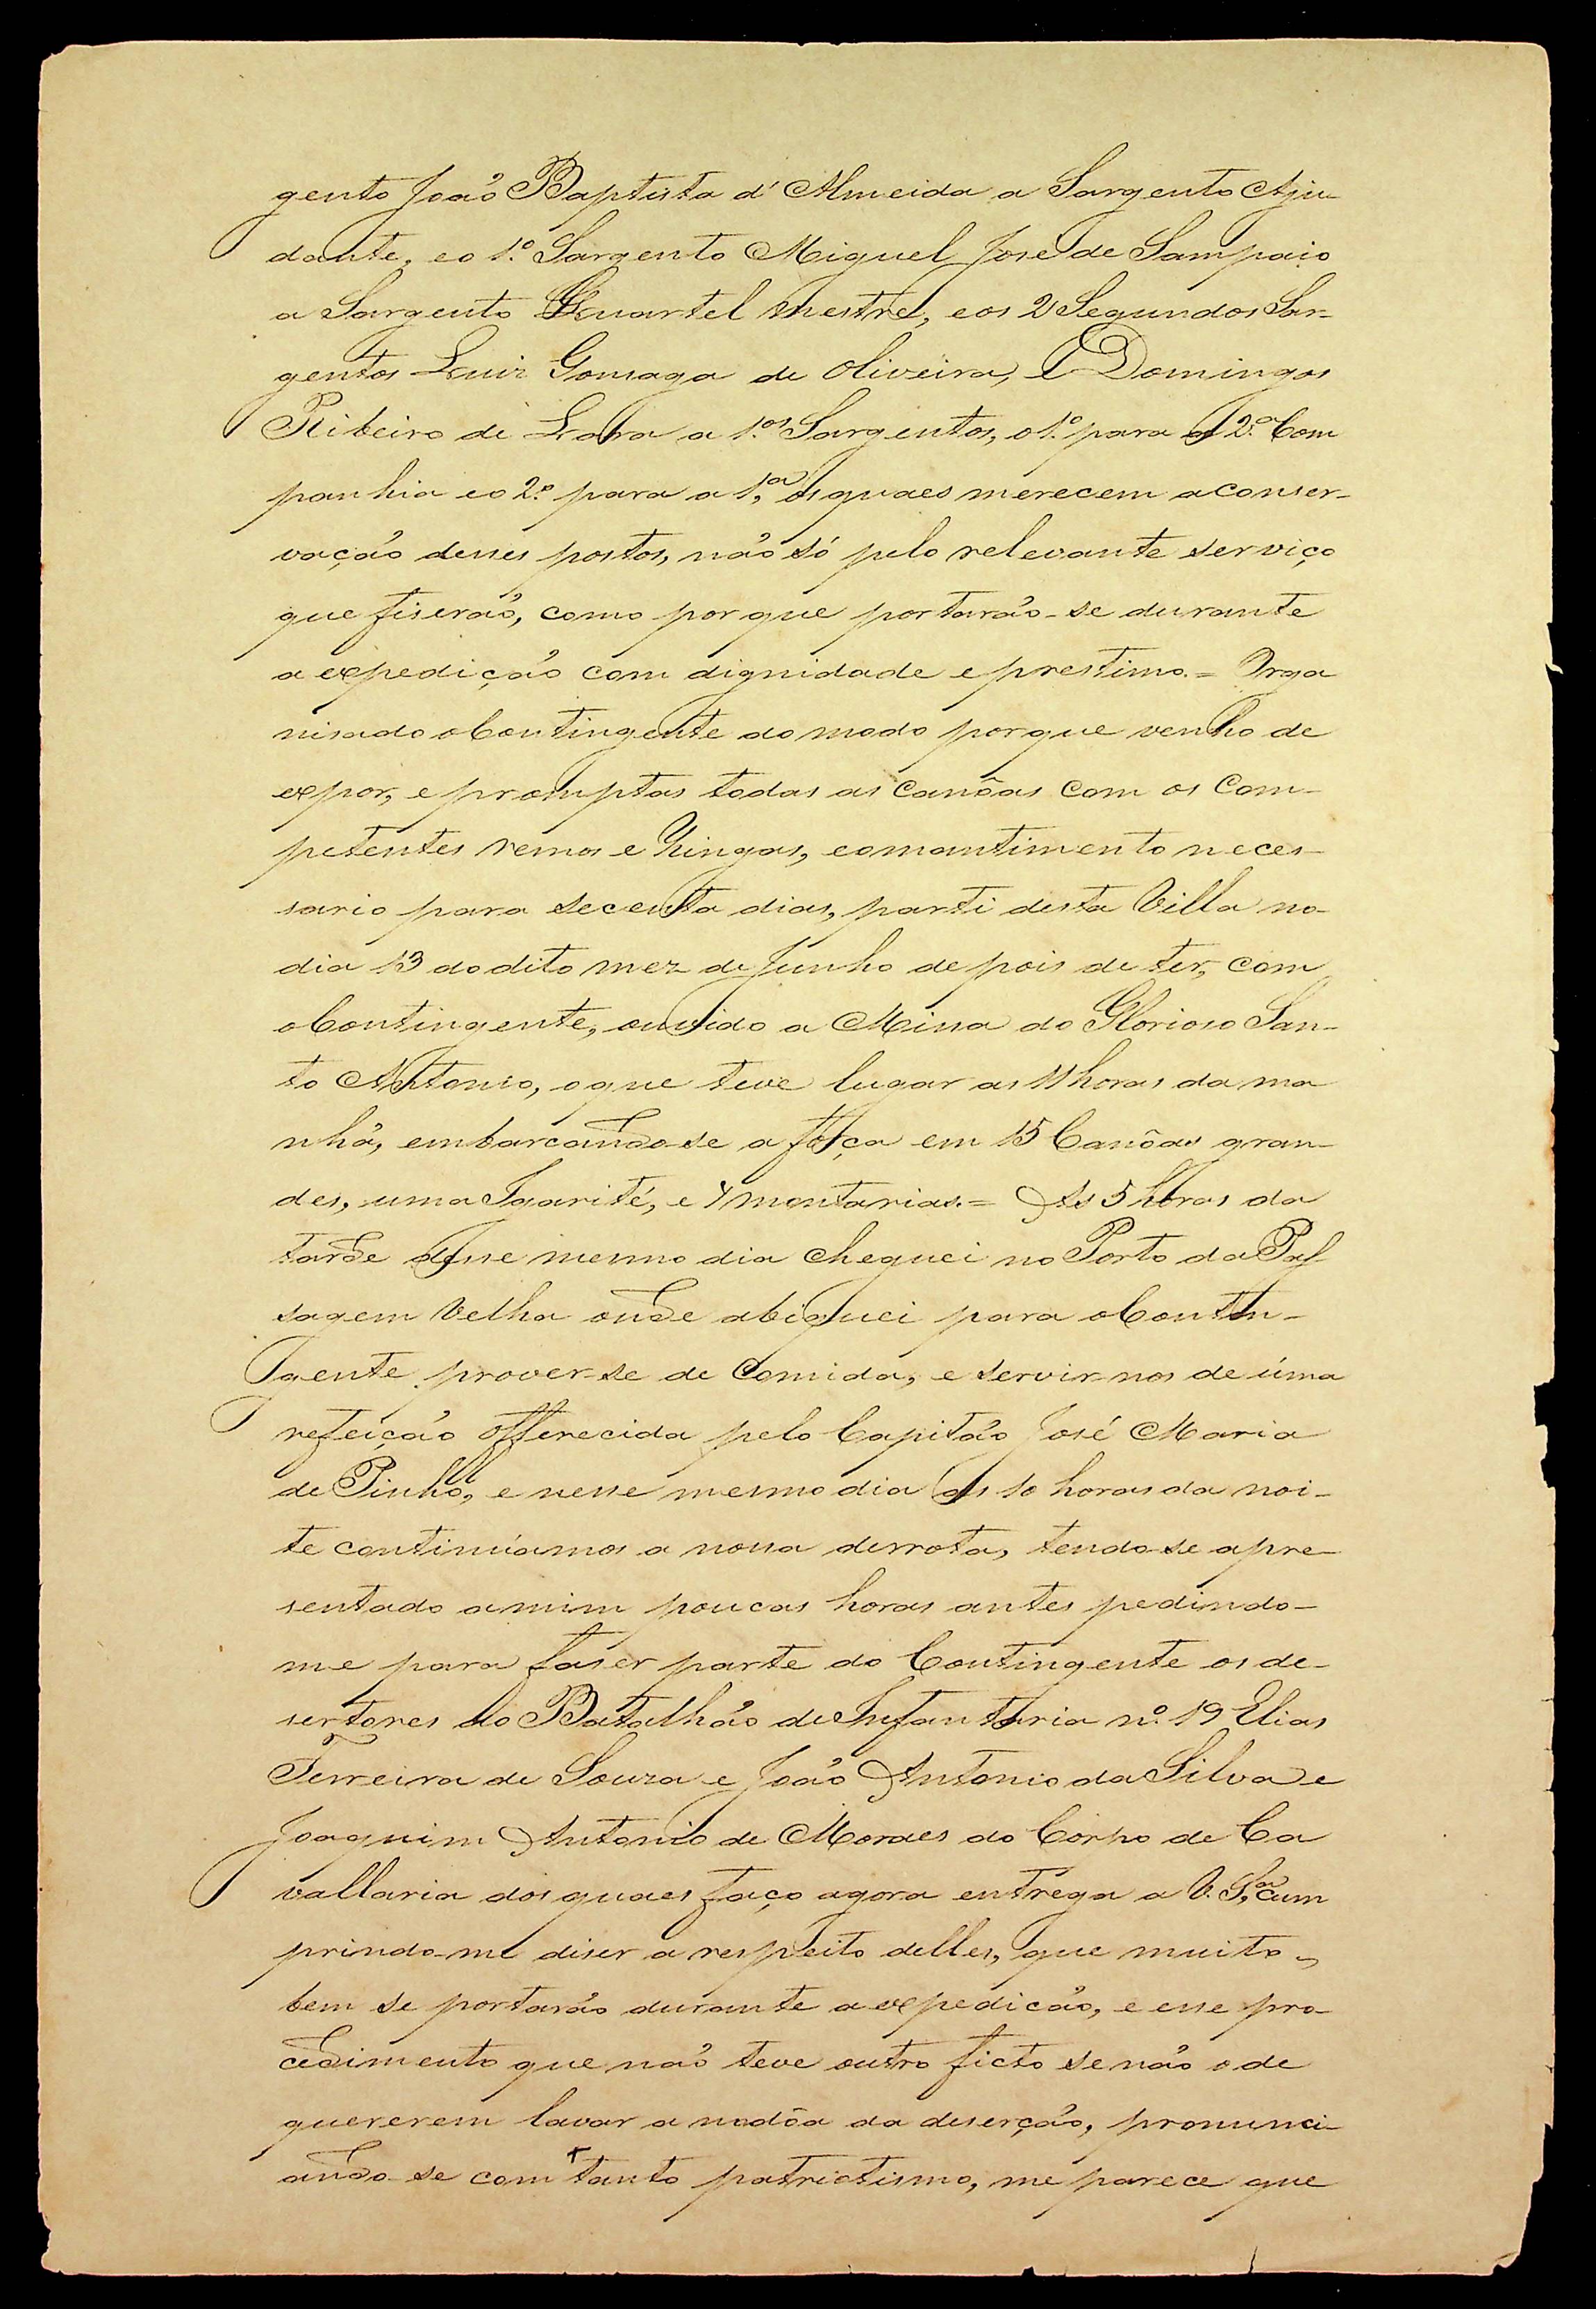 gento João Baptista d'Almeida a Sargento Aju
dante, e o 1.º Sargento Miguel José de Sampaio
a Sargento Quartel mestre, e os 2 Segundos Sar-
gentos Luiz Gonsaga de Oliveira, e Domingos
Ribeiro de Lara a 1.os Sargentos, o 1.º para a 2.ª Com
panhia e o 2.º para a 1.ª, os quaes merecem a conser-
vação desses postos, não só pelo relevante serviço
que fiserão, como por que portarão-se durante
a expedição com dignidade e prestimo.= Orga
nisado o Contingente do modo porque venho de
expor, e promptas todas as canôas com os com-
petentes remos e Zingas, e o mantimento neces-
sario para secenta dias, parti desta Villa no
dia 13 do dito mez de Junho depois de ter, com
o Contingente, ouvido a Missa do Glorioso San-
to Antonio, o que teve lugar as 11 horas da ma
nhã, embarcando-se a força em 15 Canôas gran-
des, uma Igarité, e 7 montarias.= As 5 horas da
tarde desse mesmo dia cheguei no Porto da Pas
sagem Velha onde abiquei para o Contin-
gente prover-se de comida, e servir-nos de úma
refeição offerecida pelo Capitão José Maria
de Pinho, e nesse mesmo dia as 10 horas da noi-
te continúamos a nossa derrota, tendo-se apre-
sentado a mim poucas horas antes pedindo-
me para faser parte do Contingente os de-
sertores do Batalhão de Infantaria n.º 19 Elias
Ferreira de Souza e João Antonio da Silva e
Joaquim Antonio de Moraes do Corpo de Ca
vallaria dos quaes faço agora entrega a V. S.ª, cum
prindo-me diser a respeito delles, que muito
bem se portarão durante a expedicão, e esse pro-
cedimento que não teve outro ficto senão o de
quererem lavar a nodôa da deserção, pronunci-
ando-se com tanto patriotismo, me parece que